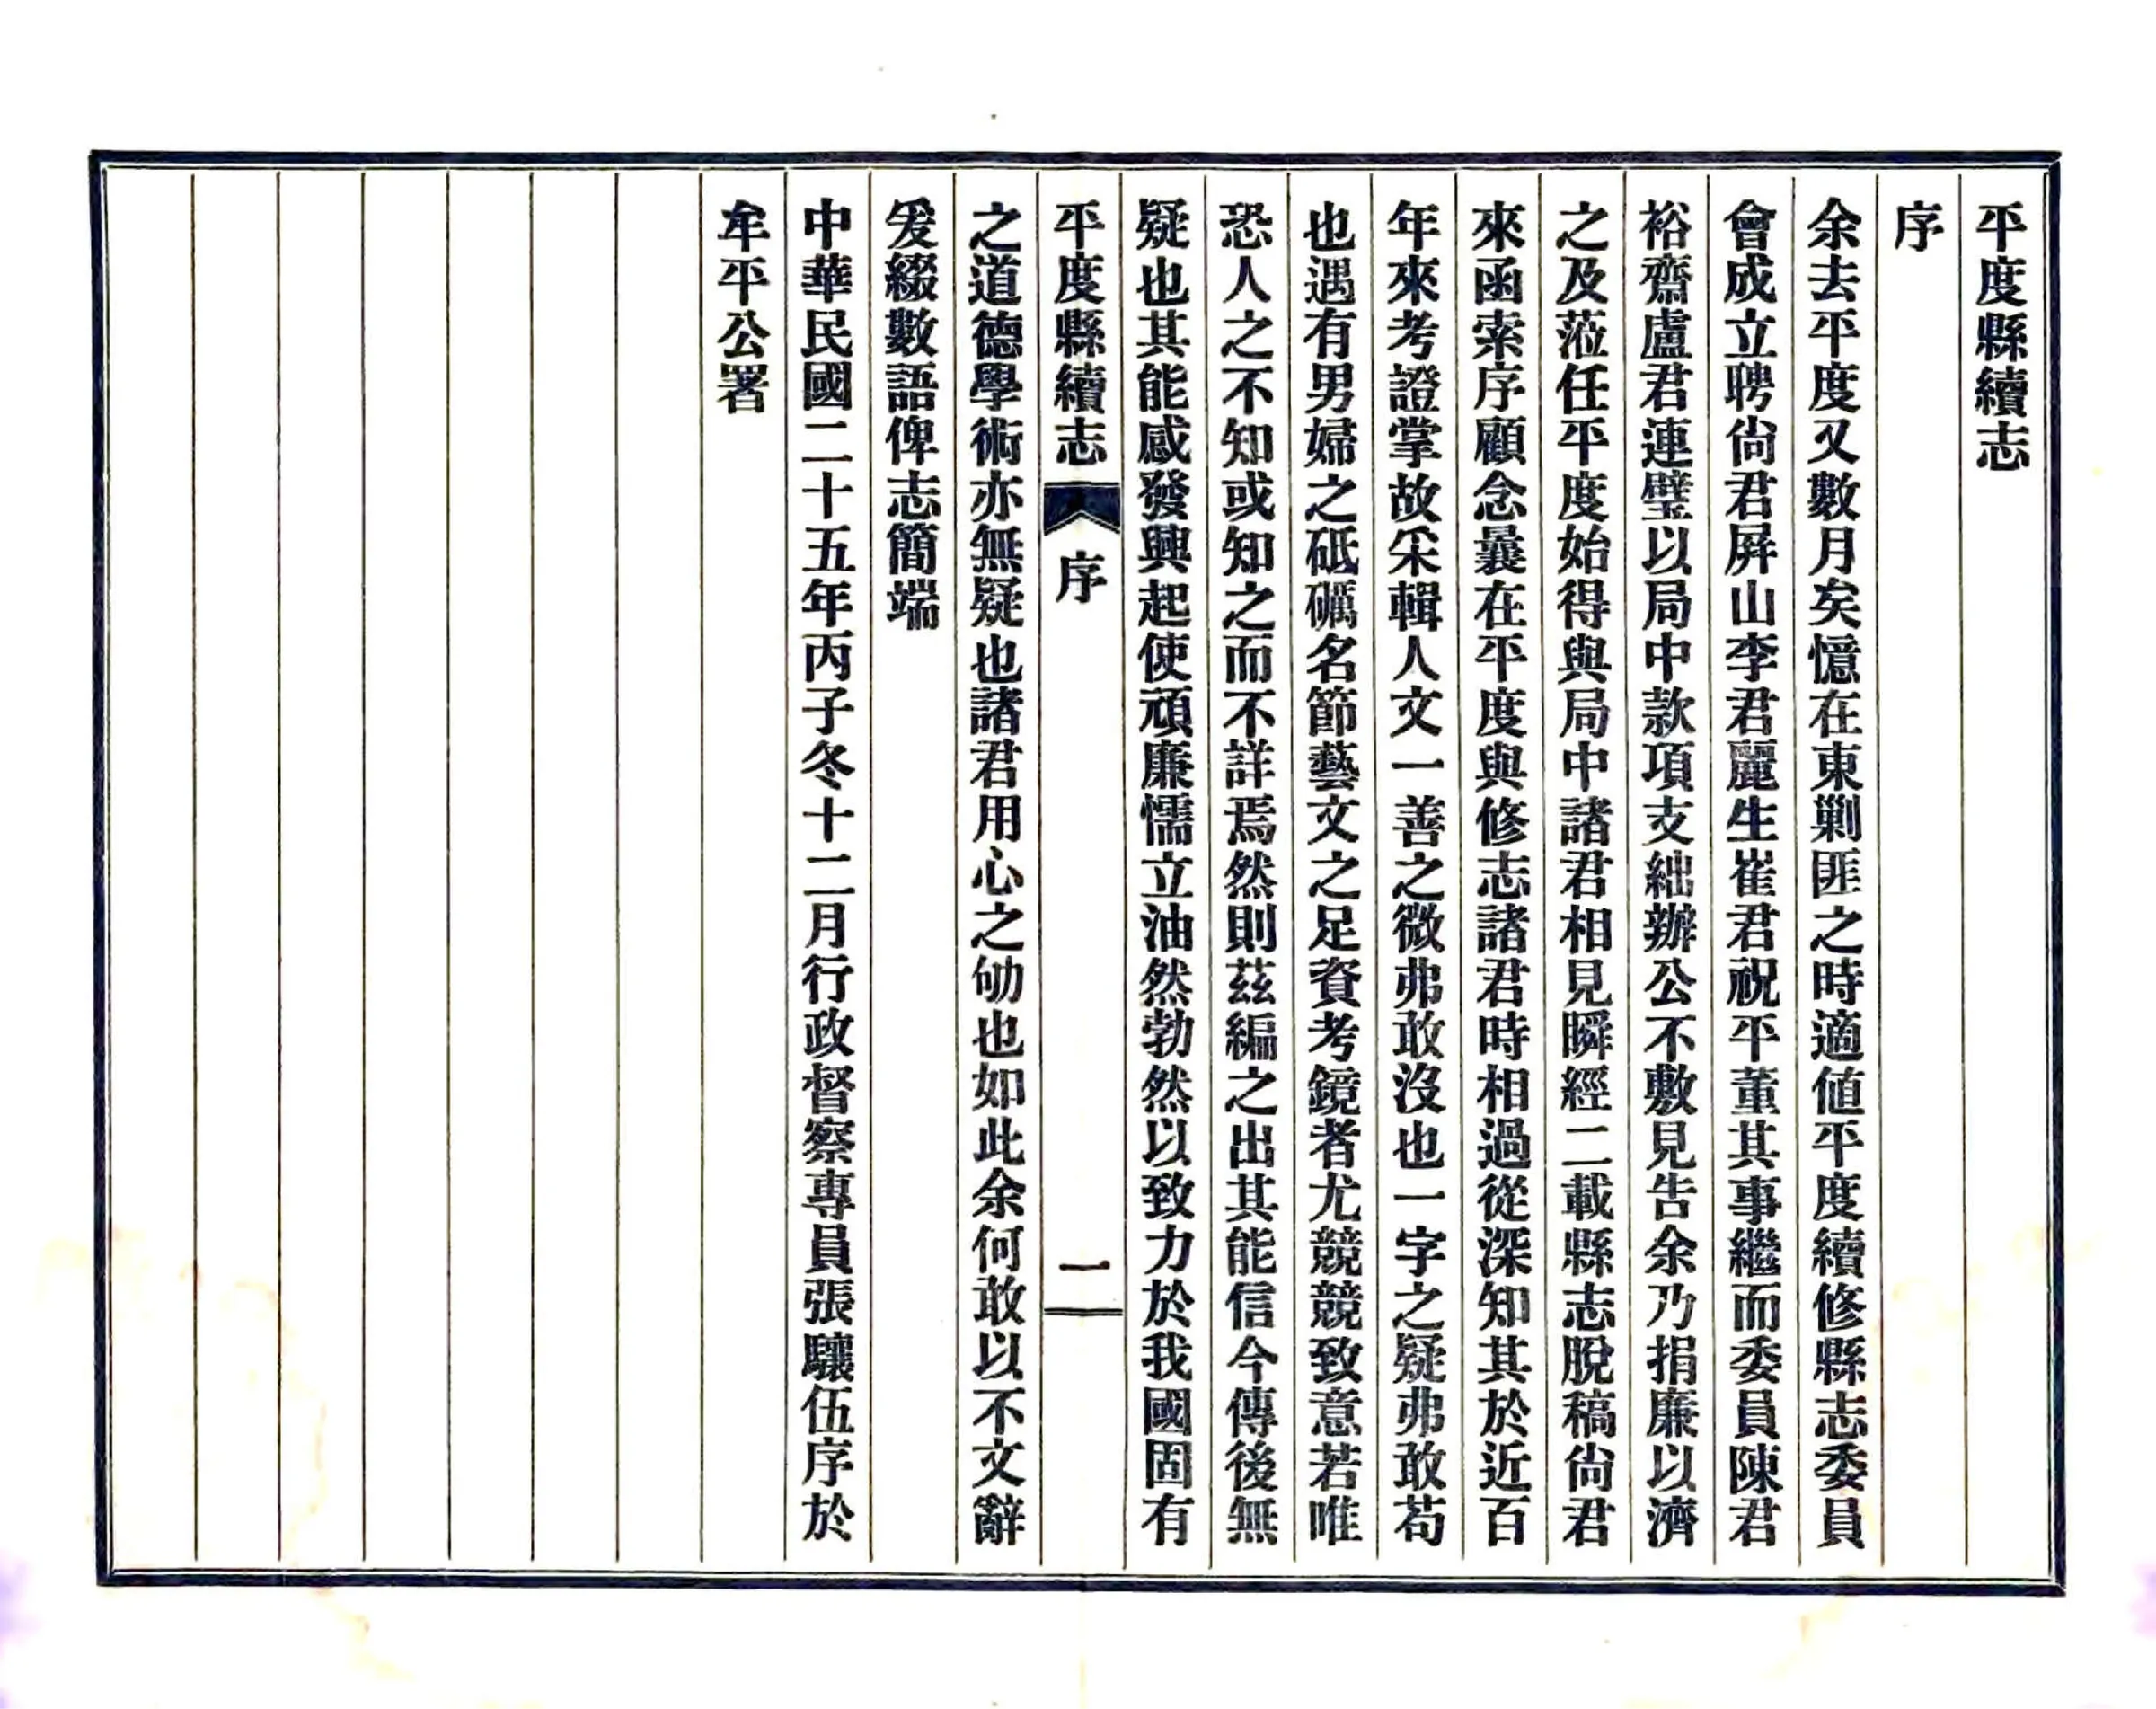 平度縣續志
序
余去平度又數月矣憶在東剿匪之時適値平度續修縣志委員
會成立聘尙君屛山李君麗生崔君祝平董其事繼而委員陳君
裕齋盧君連璧以局中款項支絀辦公不敷見告余乃捐廉以濟
之及蒞任平度始得與局中諸君相見瞬經二載縣志脫稿尙君
來函索序顧念曩在平度與修志諸君時相過從深知其於近百
年來考證掌故采輯人文一善之微弗敢沒也一字之疑弗敢苟
也遇有男婦之砥礪名節藝文之足資考鏡者尤競競致意若唯
恐人之不知或知之而不詳焉然則茲編之出其能信今傳後無
疑也其能感發興起使頑廉懦立油然勃然以致力於我國固有
平度縣續志 序 一
之道德學術亦無疑也諸君用心之劬也如此余何敢以不文辭
爰綴數語俾志簡端
中華民國二十五年丙子冬十二月行政督察專員張驤伍序於
牟平公署